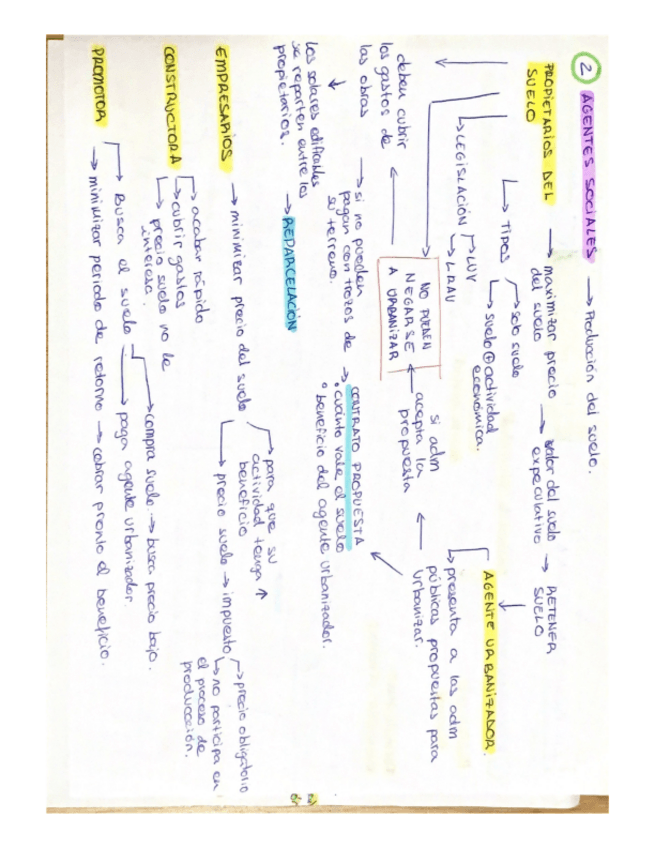 2 AGENTES SOCIALES → Producción del suelo.
PROPIETARIOS DEL SUELO → maximizar precio del suelo → valor del suelo expeculativo → RETENER SUELO
↳ TIPOS → solo suelo
↳ suelo ⊕ actividad económica.
↳ LEGISLACIÓN → LUV
↳ LRAU
AGENTE URBANIZADOR.
↳ presenta a las adm públicas propuestas para urbanizar.
si adm acepta la propuesta
NO PUEDEN NEGARSE A URBANIZAR
deben cubrir los gastos de las obras
→ si no pueden pagan con trozos de su terreno.
→ CONTRATO PROPUESTA
• cuánto vale el suelo
• beneficio del agente urbanizador.
los solares edificables se reparten entre los propietarios.
→ REPARCELACIÓN
EMPRESARIOS → minimizar precio del suelo → para que su actividad tenga ↑ beneficio
↳ precio suelo → impuesto → precio obligatorio
↳ no participa en el proceso de producción.
CONSTRUCTORA → acabar rápido
→ cubrir gastos
→ precio suelo no le interesa.
PROMOTOR → Busca el suelo → compra suelo → busca precio bajo.
→ paga agente urbanizador.
→ minimizar periodo de retorno → cobrar pronto el beneficio.